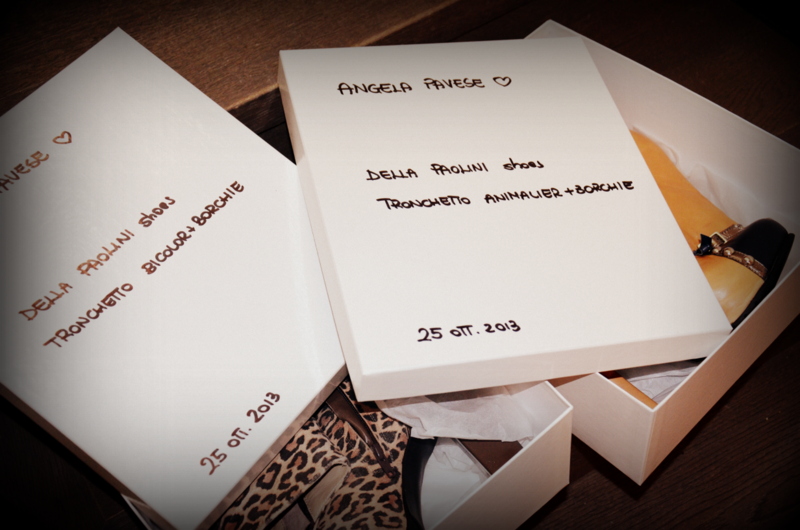 PAVESE ♡
DELLA PAOLINI shoes
TRONCHETTO BICOLOR + BORCHIE
25 OTT. 2013
ANGELA PAVESE ♡
DELLA PAOLINI shoes
TRONCHETTO ANIMALIER + BORCHIE
25 OTT. 2013